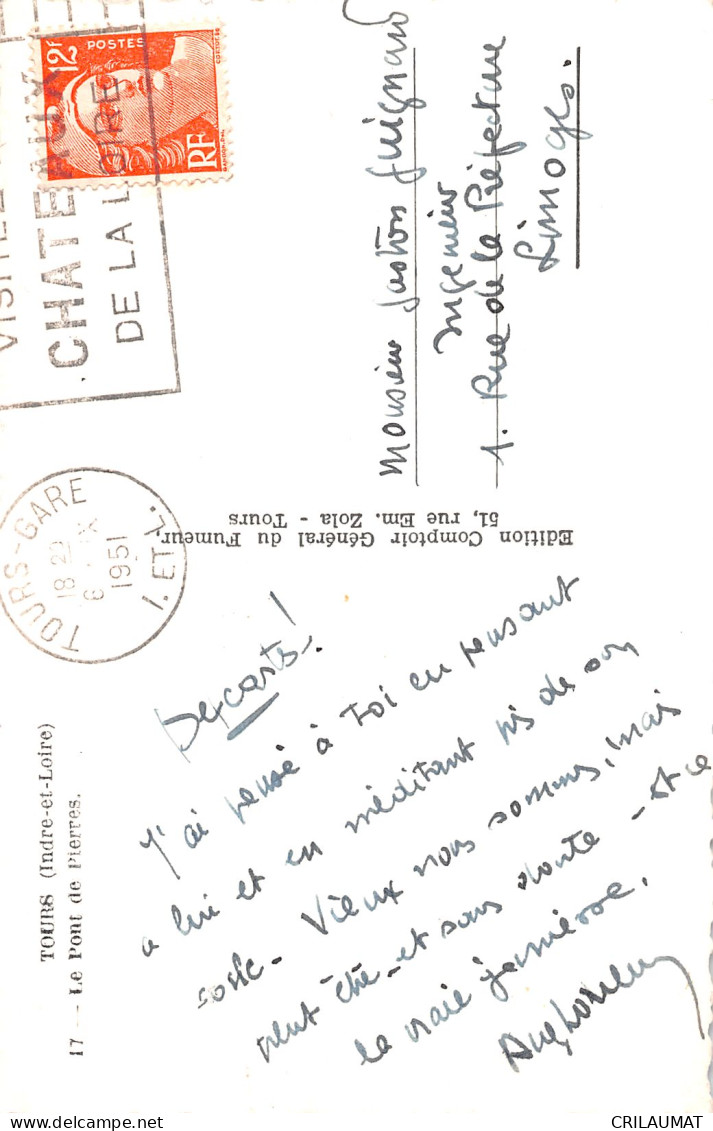 17 — Le Pont de Pierres.
TOURS (Indre-et-Loire)
Descartes!
J'ai pensé à toi en pensant
a lui et en méditant près de son
socle - Vieux nous sommes, mais
peut être - et sans doute - est ce
la vraie jeunesse.
Edition Comptoir Général du Fumeur,
51, rue Em. Zola - Tours
TOURS-GARE
18 22
8
1951
I. ET L.
CHATEAUX
DE LA LOIRE
POSTES
12F
RF
Monsieur Gaston Guignard
Ingénieur
1. Rue de la Préfecture
Limoges.
CRILAUMAT